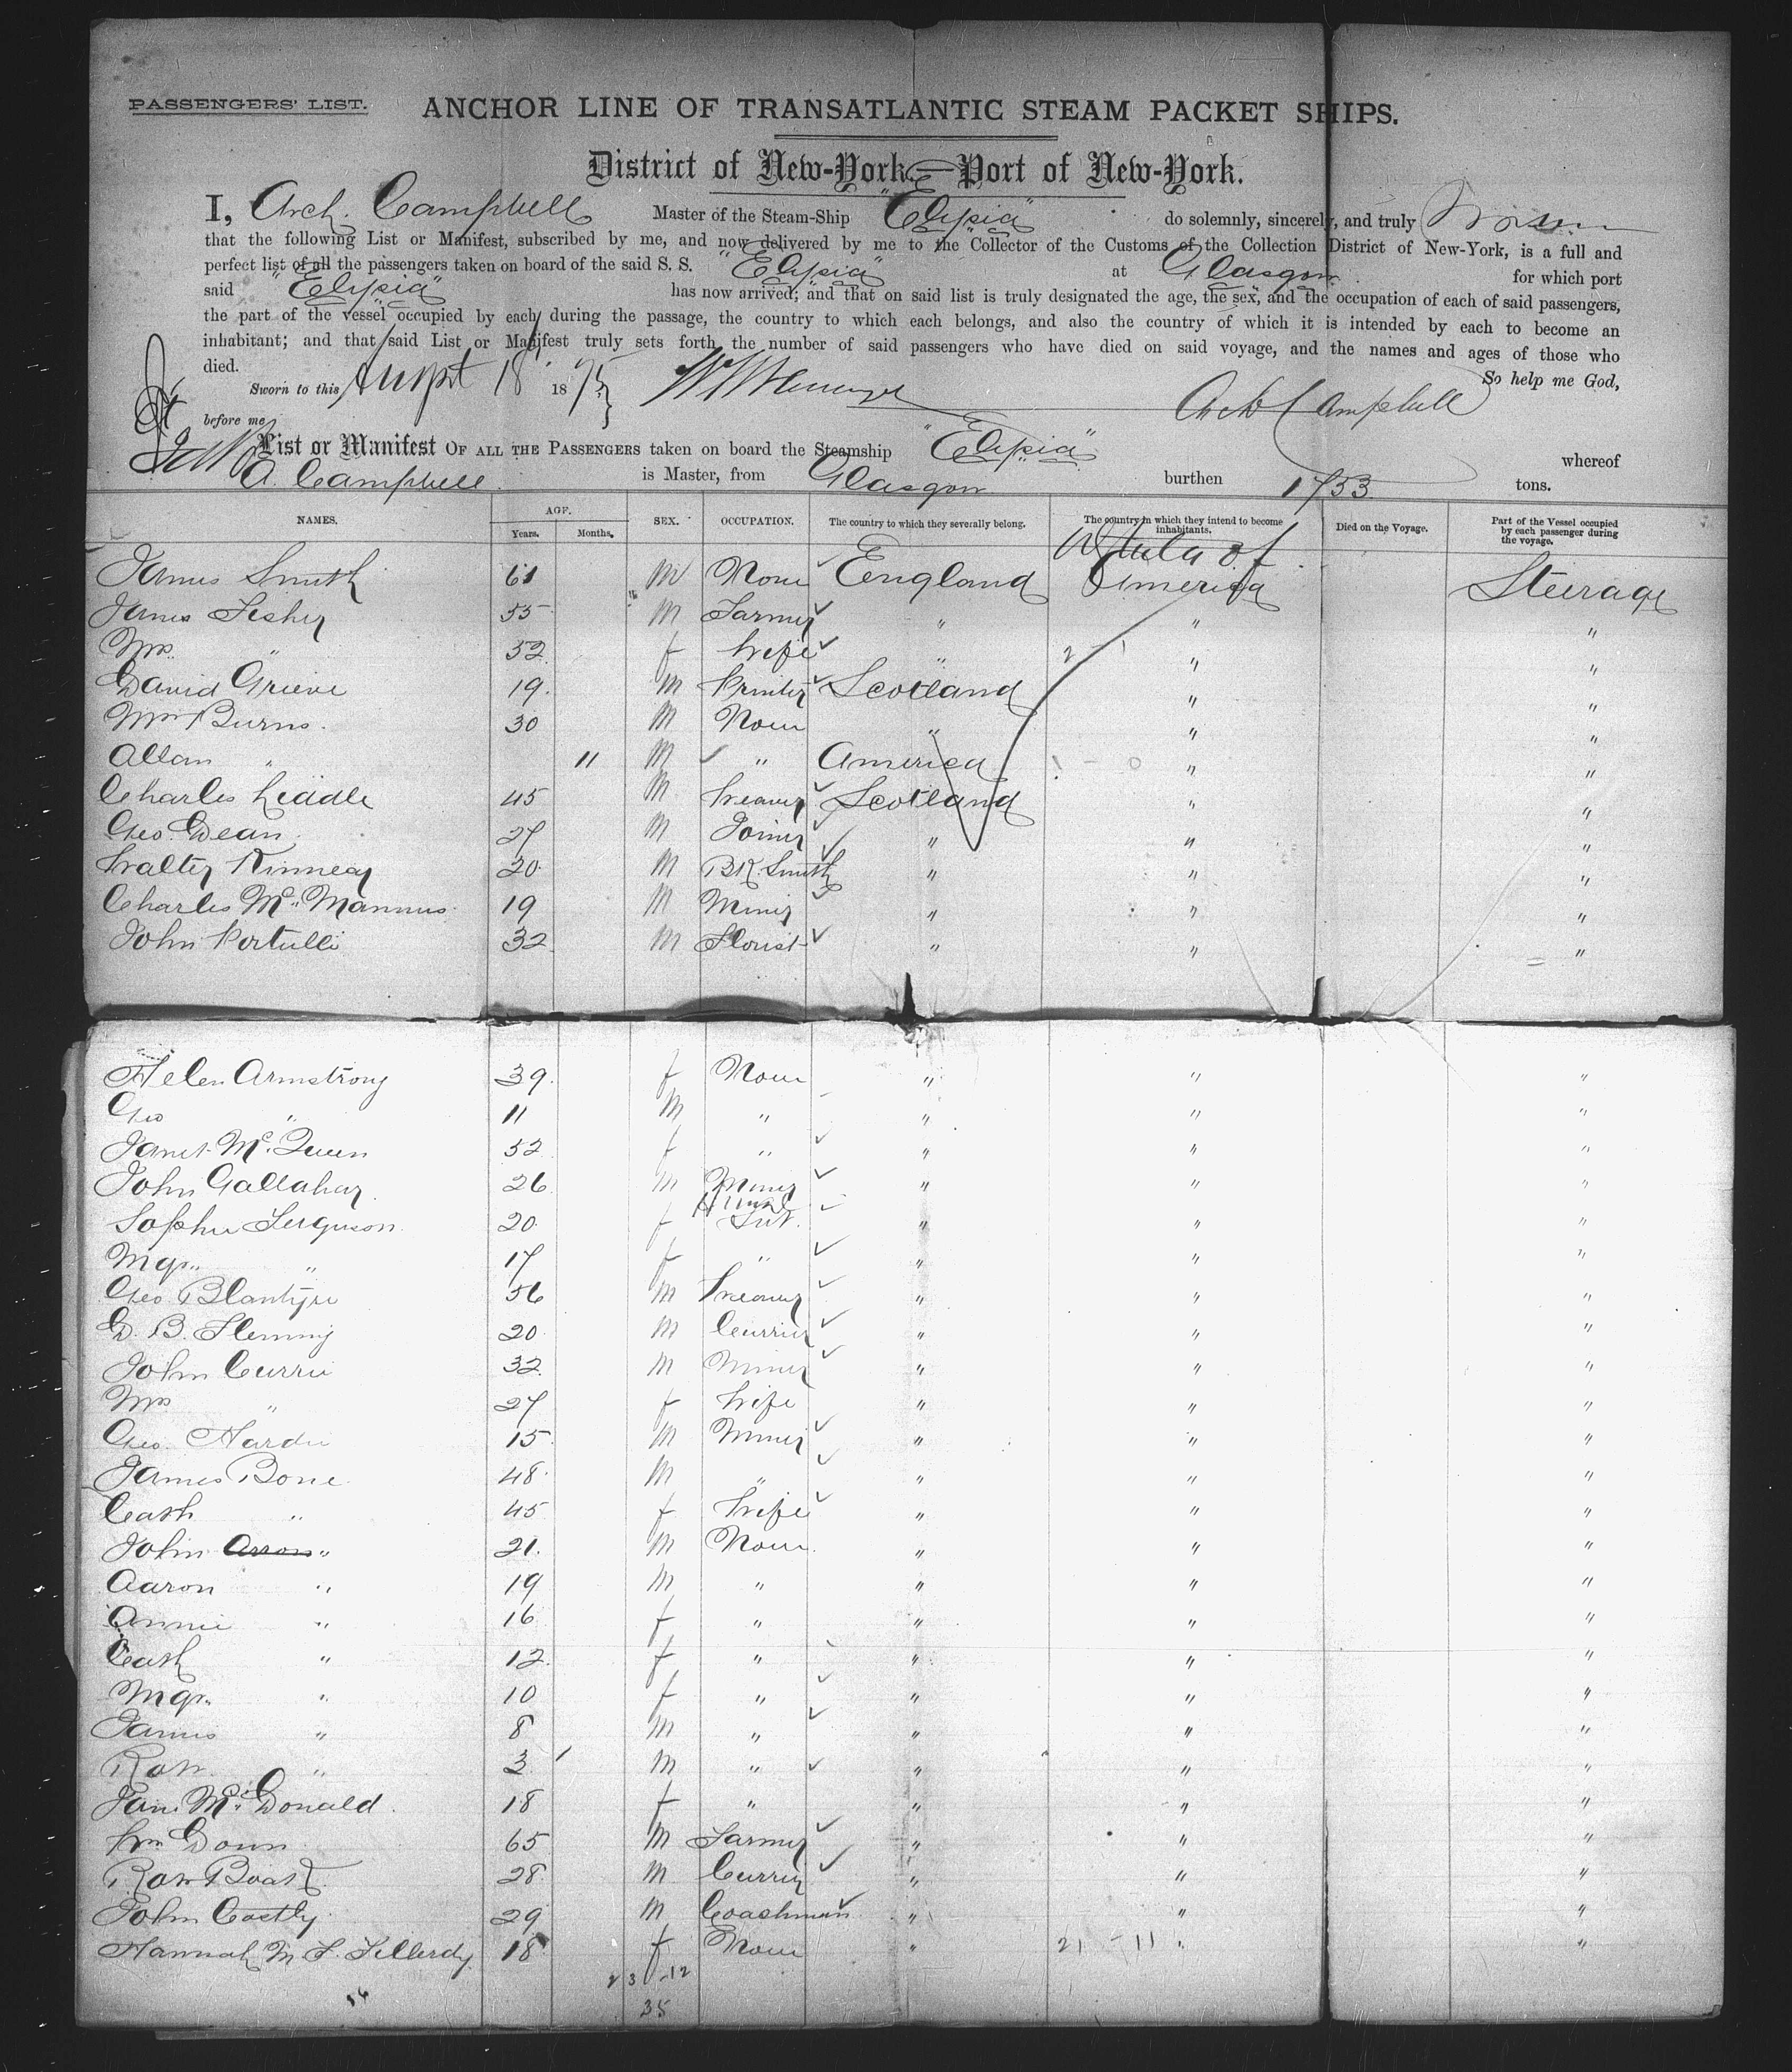 PASSENGERS' LIST.
ANCHOR LINE OF TRANSATLANTIC STEAM PACKET SHIPS.
District of New-York—Port of New-York.
I, Arch. Campbell Master of the Steam-Ship "Elysia" do solemnly, sincerely, and truly
that the following List or Manifest, subscribed by me, and now delivered by me to the Collector of the Customs of the Collection District of New-York, is a full and
perfect list of all the passengers taken on board of the said S. S. "Elysia" at Glasgow for which port
said "Elysia" has now arrived; and that on said list is truly designated the age, the sex, and the occupation of each of said passengers,
the part of the vessel occupied by each during the passage, the country to which each belongs, and also the country of which it is intended by each to become an
inhabitant; and that said List or Manifest truly sets forth the number of said passengers who have died on said voyage, and the names and ages of those who
died. So help me God,
Sworn to this August 18 1875 Arch Campbell
before me
List or Manifest OF ALL THE PASSENGERS taken on board the Steamship "Elysia" whereof
A. Campbell is Master, from Glasgow burthen 1733 tons.
NAMES. AGE. Years. Months. SEX. OCCUPATION. The country to which they severally belong. The country in which they intend to become inhabitants. Died on the Voyage. Part of the Vessel occupied by each passenger during the voyage.
James Smith 61 M None England U States of America Steerage
James Fisher 55 M Farmer " " "
Mrs " 52 f Wife " " "
David Grieve 19 M Printer Scotland " "
Mrs Burns 30 M None " " "
Allan " 11 M " America " "
Charles Liddle 45 M Weaver Scotland " "
Geo. Dean 27 M Joiner " " "
Walter Kinnear 20 M Bk. Smith " " "
Charles Mc.Mannus 19 M Miner " " "
John 32 M Florist " " "
Helen Armstrong 39 f None " " "
Geo " 11 M " " " "
Janet Mc.Queen 52 f " " " "
John Gallahar 26 M Miner " " "
Sophie Ferguson 20 f Svt. " " "
Mgt. " 17 f " " " "
Geo Blantyre 56 M Weaver " " "
D. B. Fleming 20 M Currier " " "
John Currie 32 M Miner " " "
Mrs " 27 f Wife " " "
Geo. Hardie 15 M Miner " " "
James Bone 48 M " " " "
Cath " 45 f Wife " " "
John Arron " 21 M None " " "
Aaron " 19 M " " " "
Annie " 16 f " " " "
Cath " 12 f " " " "
Mgt. " 10 f " " " "
James " 8 M " " " "
Robt. " 3 M " " " "
Jane Mc.Donald 18 f " " " "
Wm Doun 65 M Farmer " " "
Robt Boak 28 M Currier " " "
John Costly 29 M Coashman " " "
Hannah M. F. 18 f None " 21 - 11 " "
23 - 12
35